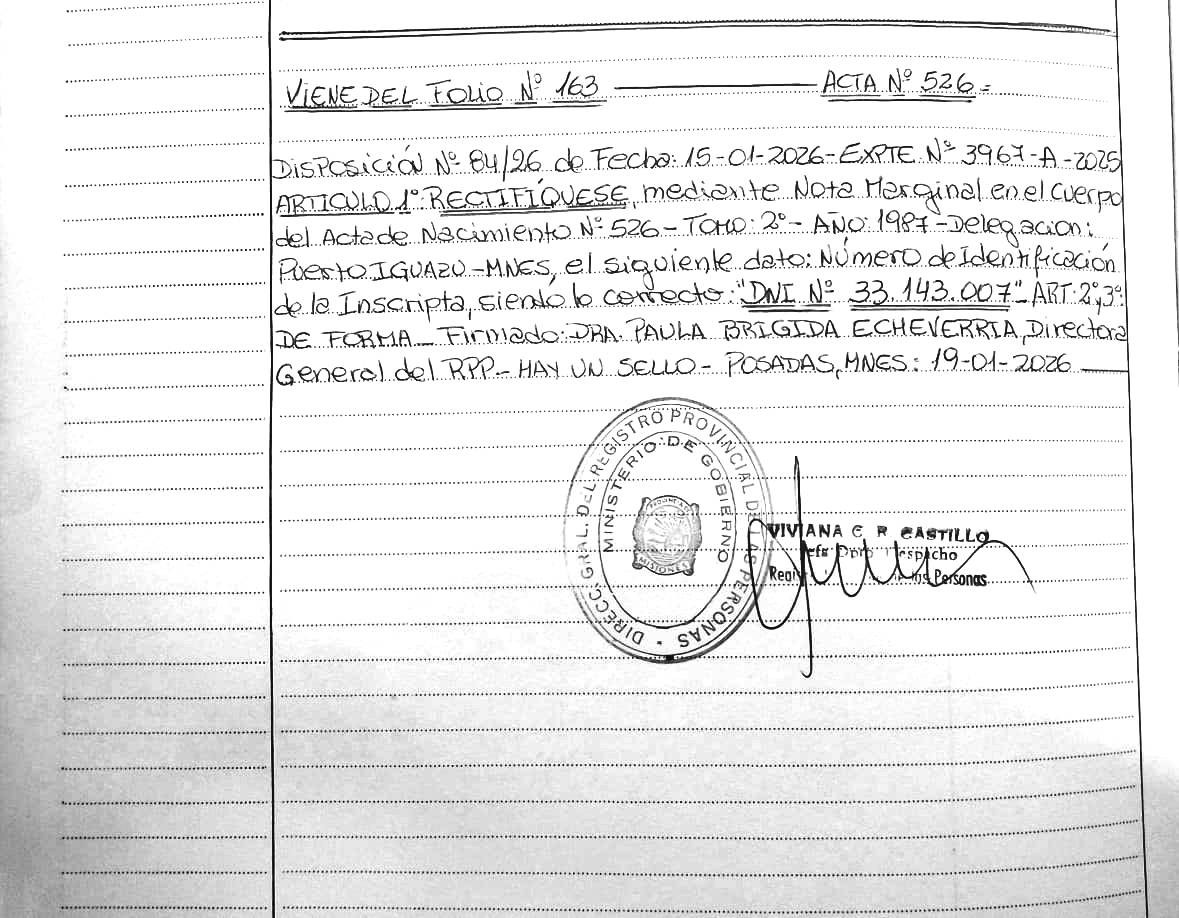 VIENE DEL FOLIO Nº 163 ——— ACTA Nº 526 =
DISPOSICIÓN Nº 84/26 de Fecha: 15-01-2026-EXPTE Nº 3967-A-2025
ARTICULO 1º: RECTIFÍQUESE, mediante Nota Marginal en el cuerpo
del Acta de Nacimiento Nº 526 - TOMO: 2º - AÑO: 1987 - Delegacion:
Puerto IGUAZU - MNES, el siguiente dato: NÚMERO de Identificación
de la Inscripta, siendo lo correcto: "DNI Nº 33.143.007" ART: 2º, 3º:
DE FORMA - Firmado: DRA. PAULA BRIGIDA ECHEVERRIA, Directora
General del RPP - HAY UN SELLO - POSADAS, MNES: 19-01-2026 ———
DIRECC. GRAL. DEL REGISTRO PROVINCIAL DE LAS PERSONAS
MINISTERIO DE GOBIERNO
MISIONES
VIVIANA E. R CASTILLO
Personas